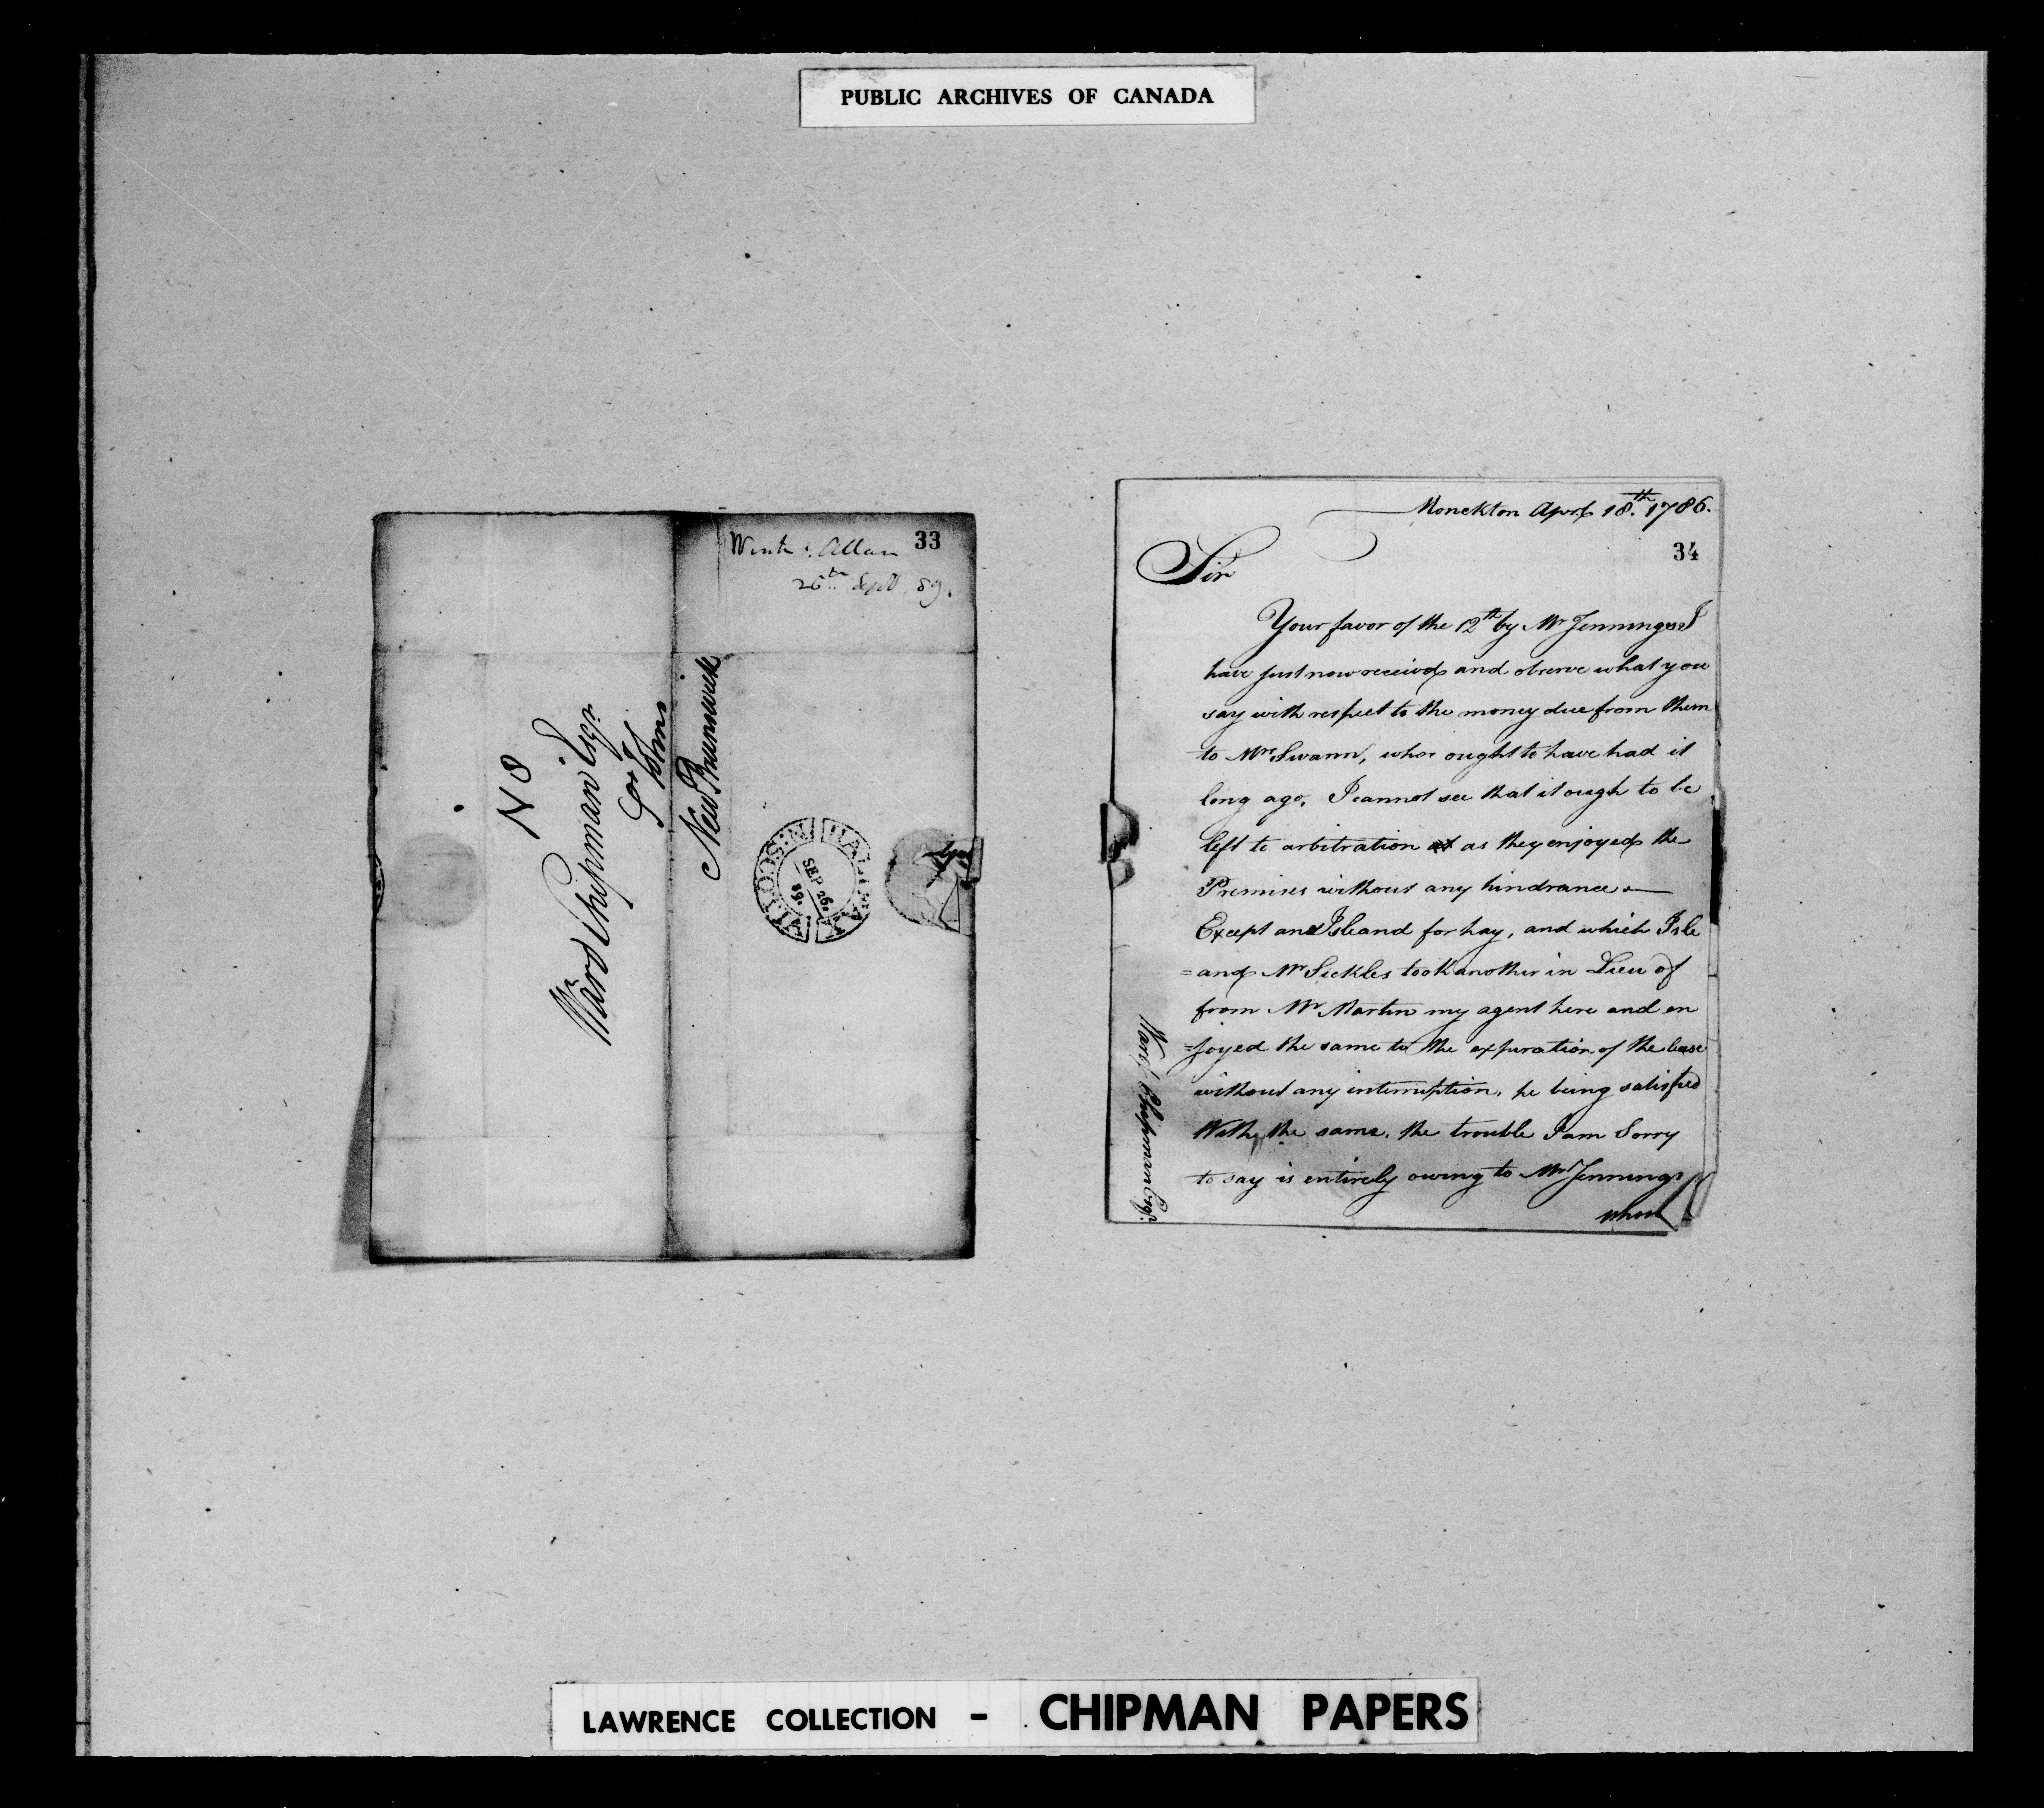 PUBLIC ARCHIVES OF CANADA
33
Wintr. Allan
26th Sept. 89.
N 8
Ward Chipman Esqr
St Johns
New Brunswick
HALIFAX N:SCOTIA
SEP 26.
89.
Monckton April 18th. 1786.
34
Sir
Your favor of the 12th by Mr Jennings I
have just now received and observe what you
say with respect to the money due from them
to Mrs Swann, who ought to have had it
long ago, I cannot see that it ough to be
left to arbitration as they enjoyed the
Premises without any hindrance —
Except and Island for hay, and which Isle
=and Mr Sickles took another in Lieu of
from Mr Martin my agent here and en
=joyed the same to the expiration of the lease
without any interruption, he being satisfied
With the same. the trouble I am Sorry
to say is entirely owing to Mr Jennings
whose
Ward Chipman Esqr.
LAWRENCE COLLECTION - CHIPMAN PAPERS